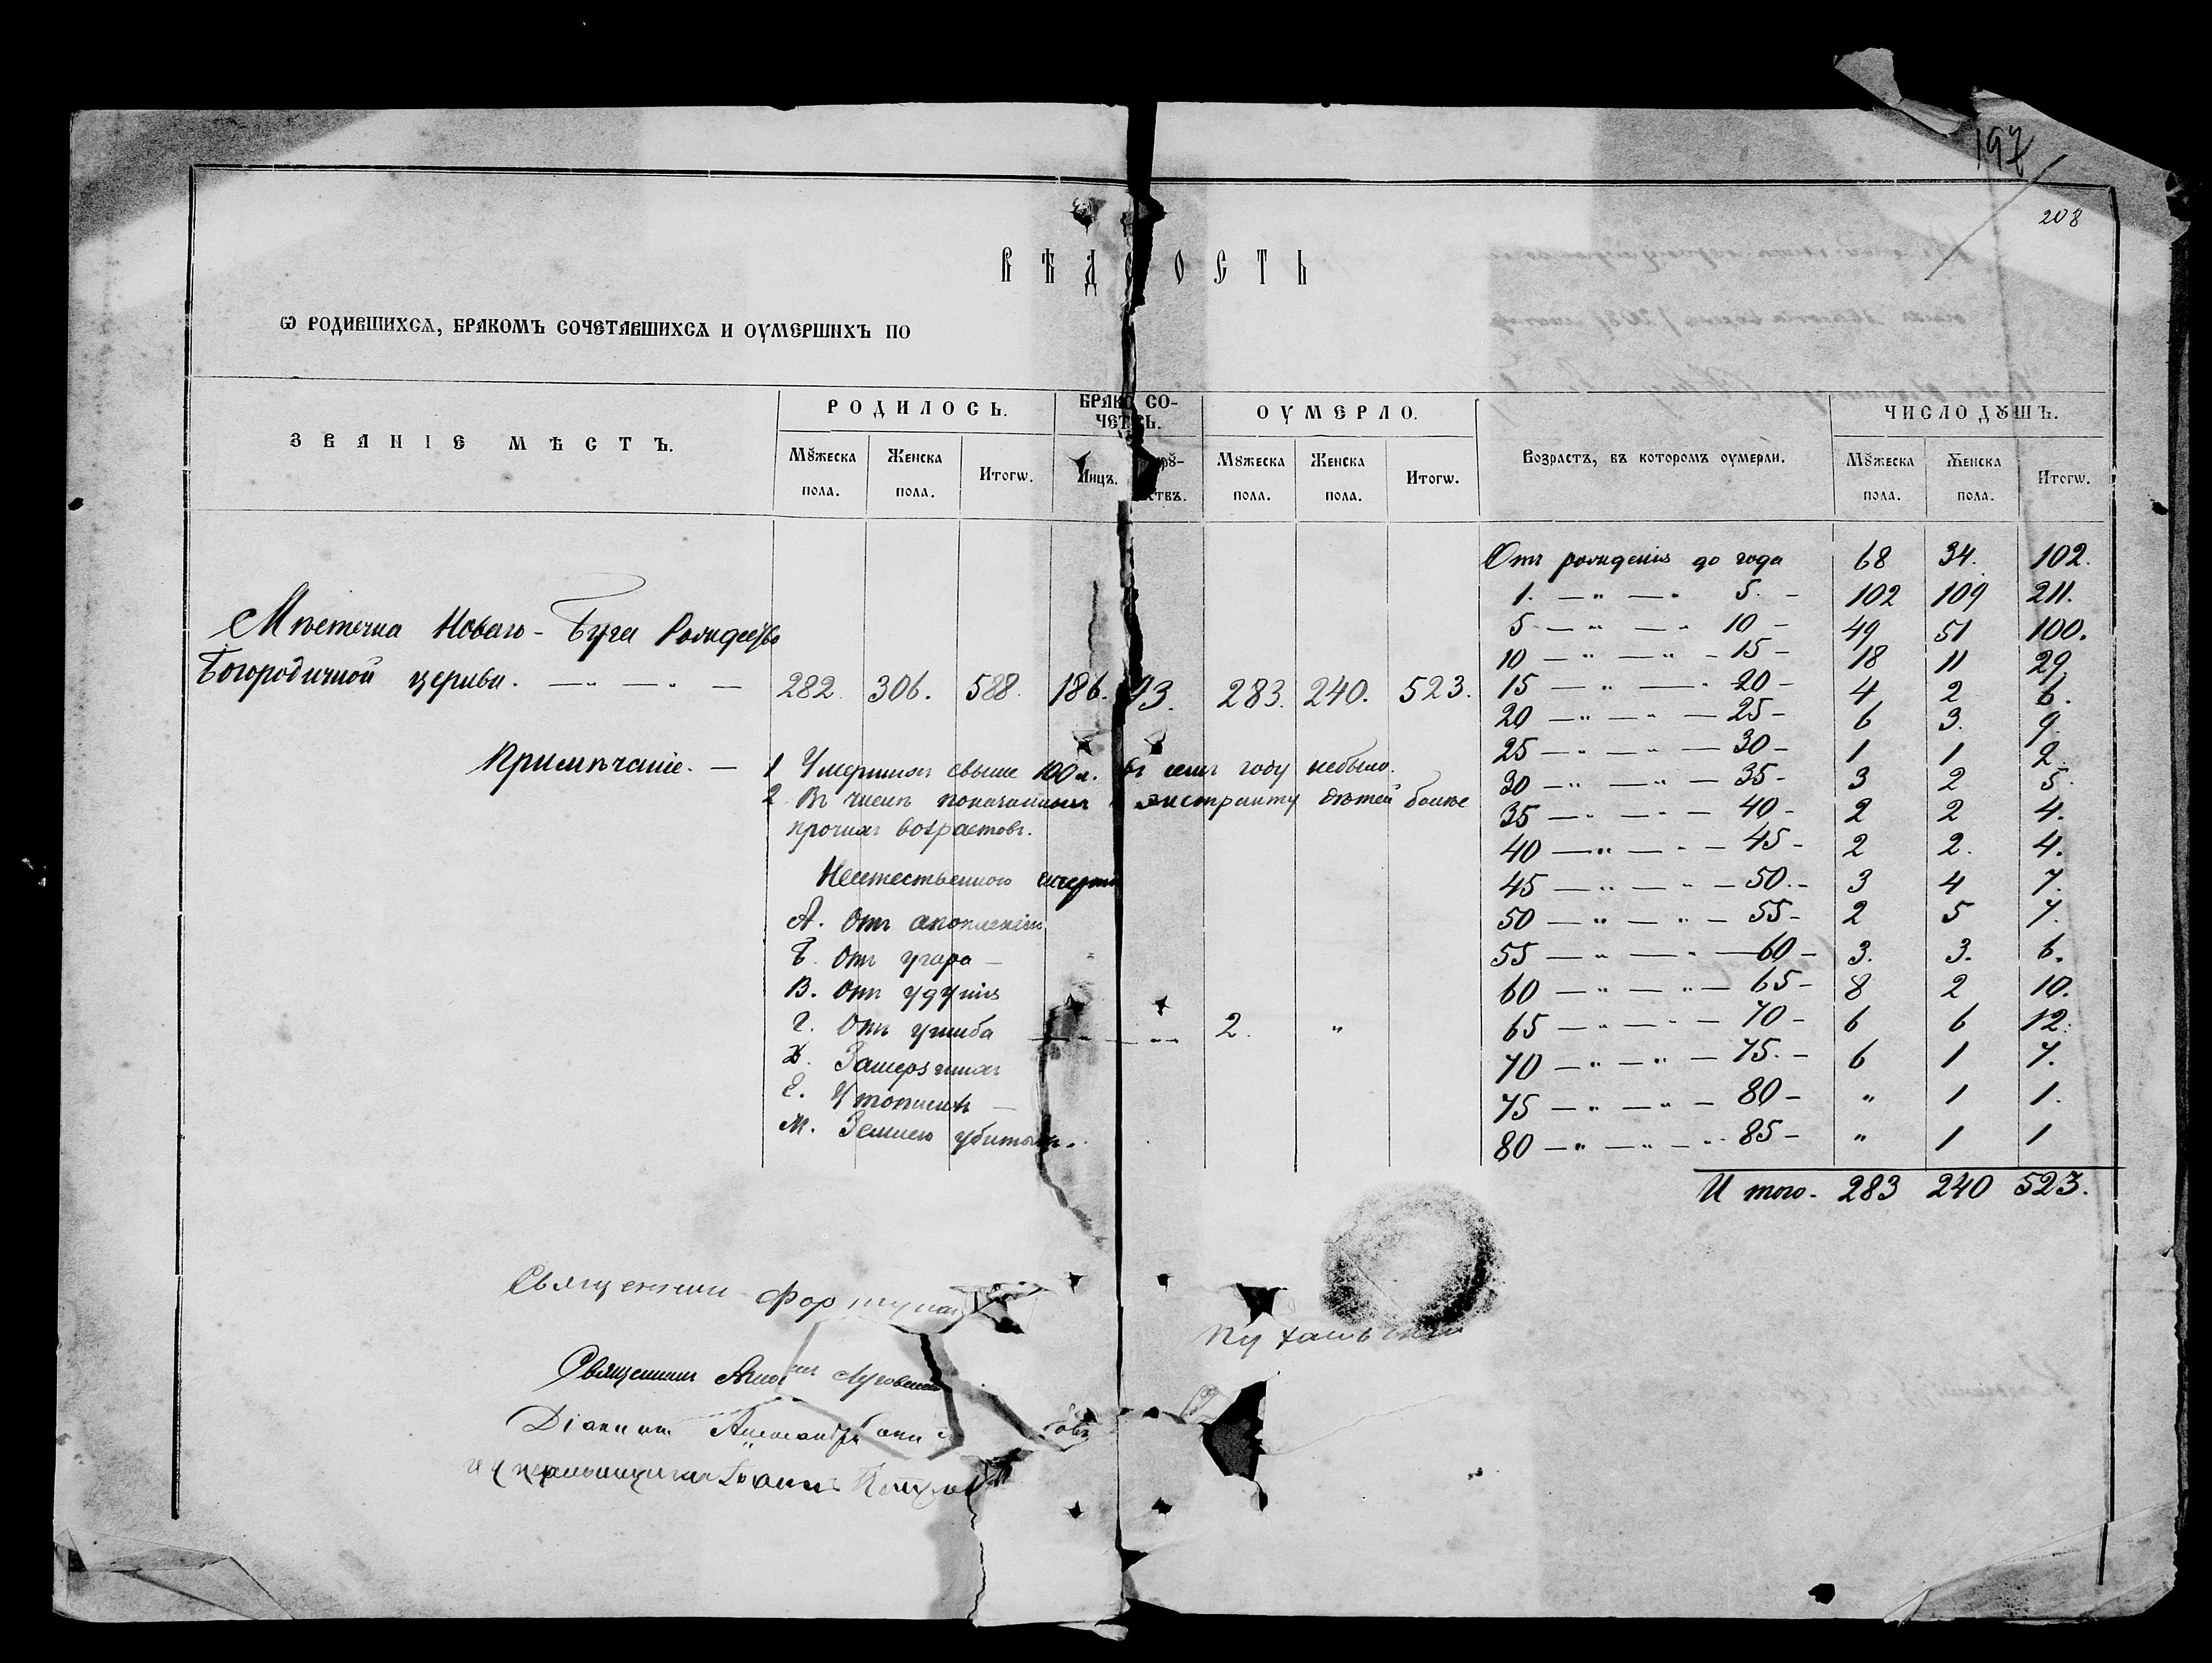 197
208
ВѢД ОСТЬ
Ѡ РОДИВШИХСѦ, БРАКОМЪ СОЧЕТАВШИХСѦ И ОУМЕРШИХЪ ПО
ЗВАНІЕ МѢСТЪ.
РОДИЛОСЬ.
БРАКО СО-
ЧЕТ СЬ.
ОУМЕРЛО.
Возрастъ, въ которомъ оумерли.
ЧИСЛО ДꙊШЪ.
Мꙋжеска пола.
Женска пола.
Итогѡ.
Лицъ.
ствъ.
Мꙋжеска пола.
Женска пола.
Итогѡ.
Мꙋжеска пола.
Женска пола.
Итогѡ.
Мѣстечка Новаго-Буга Рождество
Богородичной церкви. — „ — „ — 282. 306. 588. 186. 93. 283. 240. 523.
Примѣчаніе. — 1 Умершихъ свыше 100 л. въ семъ году небыло.
2. Въ числѣ показанныхъ экстракту дѣтей болѣе
прочихъ возрастовъ.
Неестественною смертію
А. Отъ опоенія
Б. Отъ угара —
В. Отъ удушія
Г. Отъ ушиба — 2. „
Д. Замерзшихъ
Е. Утопшихъ —
Ж. Землею убитыхъ.
Отъ рожденія до года 68 34. 102.
1. — „ — „ 5. — 102 109 211.
5 — „ — „ 10 — 49 51 100.
10 — „ — „ — 15 — 18 11 29
15 — „ — „ 20 — 4 2 6.
20 — „ — „ — 25 — 6 3. 9.
25 — „ — „ — 30 — 1 1 2
30 — „ — „ — 35 — 3 2 5.
35 — „ — „ — 40 — 2 2 4.
40 — „ — „ — 45 — 2 2. 4.
45 — „ — „ — 50. — 3 4 7.
50 — „ — „ — 55 — 2 5 7.
55 — „ — „ — 60 — 3. 3. 6.
60 — „ — „ — 65 — 8 2 10.
65 — „ — „ — 70 — 6 6 12.
70 — „ — „ — 75. — 6 1 7.
75 — „ — „ — 80 — „ 1 1.
80 — „ — „ — 85 — „ 1 1
Итого. 283 240 523.
Священникъ
Священникъ
Діаконъ Александръ
Іоаннъ